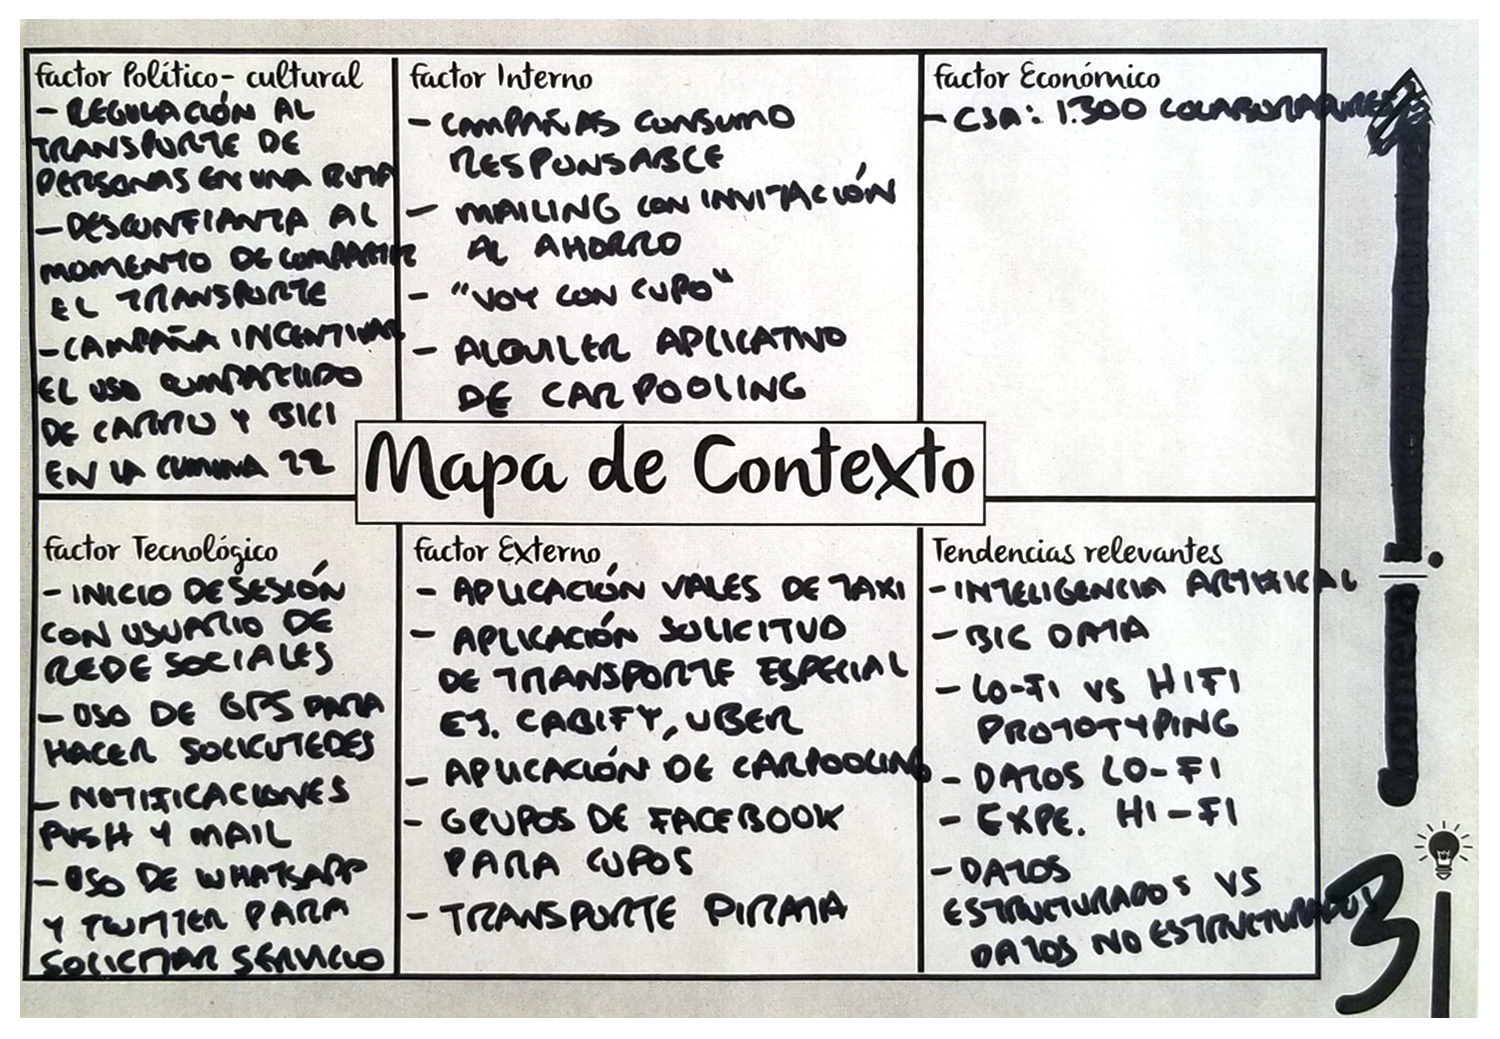 factor Político- cultural
- REGULACIÓN AL
TRANSPORTE DE
PERSONAS EN UNA RUTA
- DESCONFIANZA AL
MOMENTO DE COMPARTIR
EL TRANSPORTE
- CAMPAÑA INCENTIVAR
EL USO COMPARTIDO
DE CARRO Y BICI
EN LA COMUNA 22
factor Interno
- CAMPAÑAS CONSUMO
RESPONSABLE
- MAILING CON INVITACIÓN
AL AHORRO
- "VOY CON CUPO"
- ALQUILER APLICATIVO
DE CARPOOLING
factor Económico
- CSA: 1.300 COLABORADORES
Mapa de Contexto
factor Tecnológico
- INICIO DE SESIÓN
CON USUARIO DE
REDE SOCIALES
- USO DE GPS PARA
HACER SOLICUTEDES
- NOTIFICACIONES
PUSH Y MAIL
- USO DE WHATSAPP
Y TWITTER PARA
SOLICITAR SERVICIO
factor Externo
- APLICACIÓN VALES DE TAXI
- APLICACIÓN SOLICITUD
DE TRANSPORTE ESPECIAL
EJ. CABIFY, UBER
- APLICACIÓN DE CARPOOLING
- GRUPOS DE FACEBOOK
PARA CUPOS
- TRANSPORTE PIRATA
Tendencias relevantes
- INTELIGENCIA ARTIFICAL
- BIG DATA
- LO-FI VS HIFI
PROTOTYPING
- DATOS LO-FI
- EXPE. HI-FI
- DATOS
ESTRUCTURADOS VS
DATOS NO ESTRUCTURADOS
3i